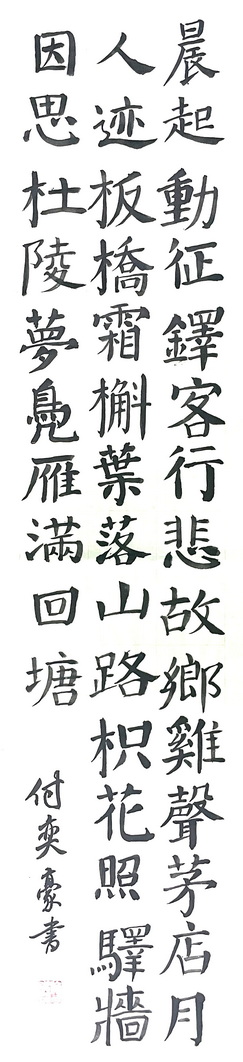 晨起動征鐸客行悲故鄉雞聲茅店月
人迹板橋霜槲葉落山路枳花照驛牆
因思杜陵夢鳧雁滿回塘
付奕豪書